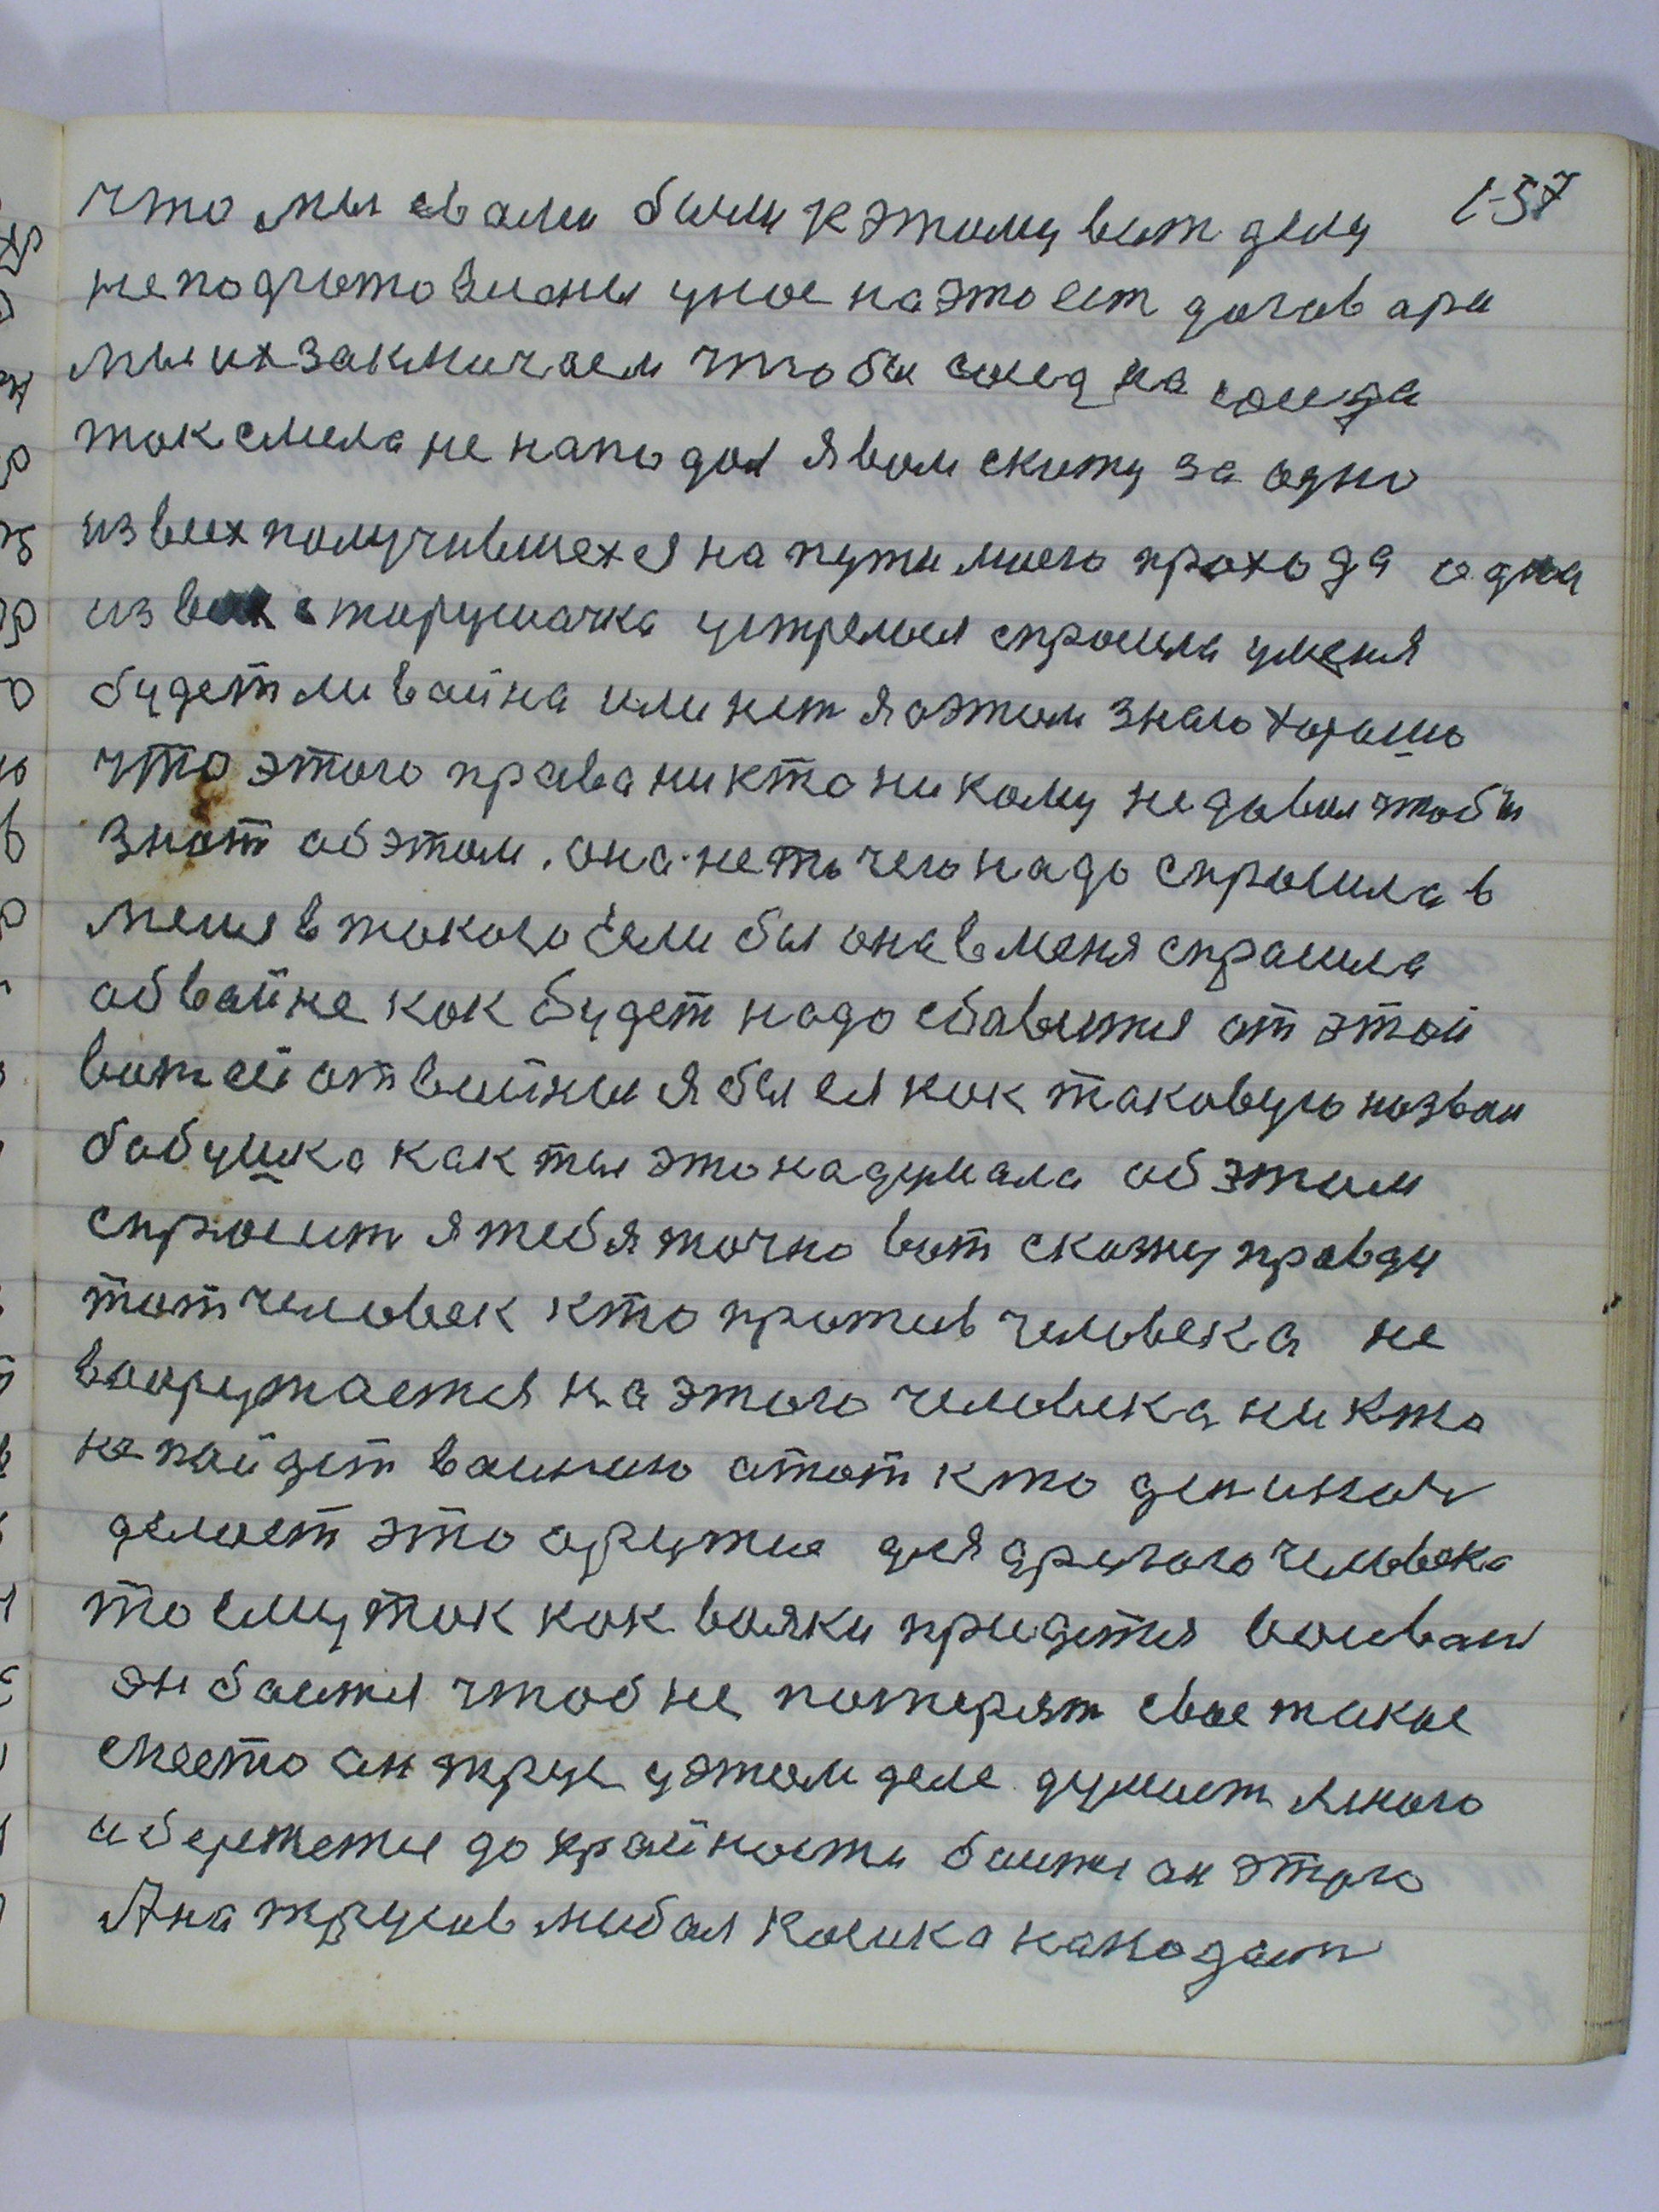 1-57
что мы свами были к этому вот делу
не подготовлены унас на это ест договари
мы их заключаем чтобы сосед на соседа
так смела не нападал я вам скажу за одно
из всех получившехся на пути моего прохода одна
из всех старушачка устремься спросила уменя
будет ли вайна или нет я озтом знаю харашо
что этого права никто никому недавал чтобы
знат обэтом. она не то чего надо спросила в
меня в такого если бы она в меня спрасила
обвайне как будет надо сбавится от этой
вот ей отвайны я бы ея как таковую назвал
бабушка как ты это надумала об этом
спросит я тебя точно вот скажу правду
тот человек кто против человека не
вооружается на этого человека никто
не пайдет вайною атот кто ден иноч
делает это аружие для другого человека
то ему так как вояки придется воеват
он баится чтоб не потерят свое такое
место он трус у этом деле думает много
и бережется до крайности баится он этого
А на трусов любая кошка нападает